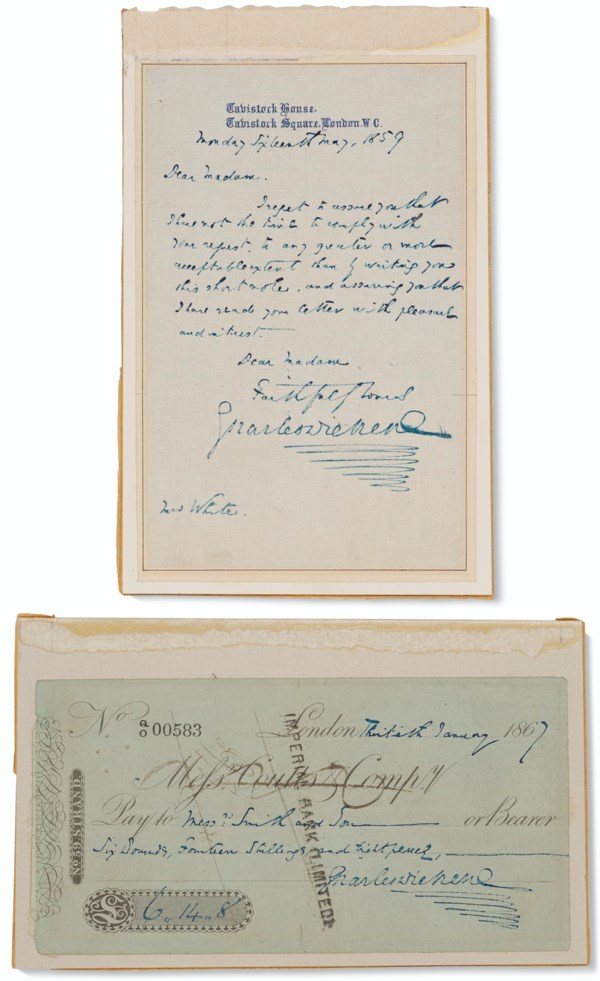 Tavistock House,
Tavistock Square, London. W.C.
Monday Sixteenth May, 1859
Dear Madam.
I regret to assure you that
I have not the time to comply with
your request, to any greater or more
acceptable extent than by writing you
this short note, and assuring you that
I have read your letter with pleasure
and interest.
Dear Madam
Faithfully Yours
Charles Dickens
Mrs White.
No a/o 00583 London Thirtieth January 1867
Messrs. Coutts & Compy
Pay to Messrs. Smith and Son or Bearer
Six Pounds, Fourteen Shillings, and Eight pence,
Charles Dickens
£6,,14,,8
No. 59, STRAND.
IMPERIAL BANK (LIMITED)